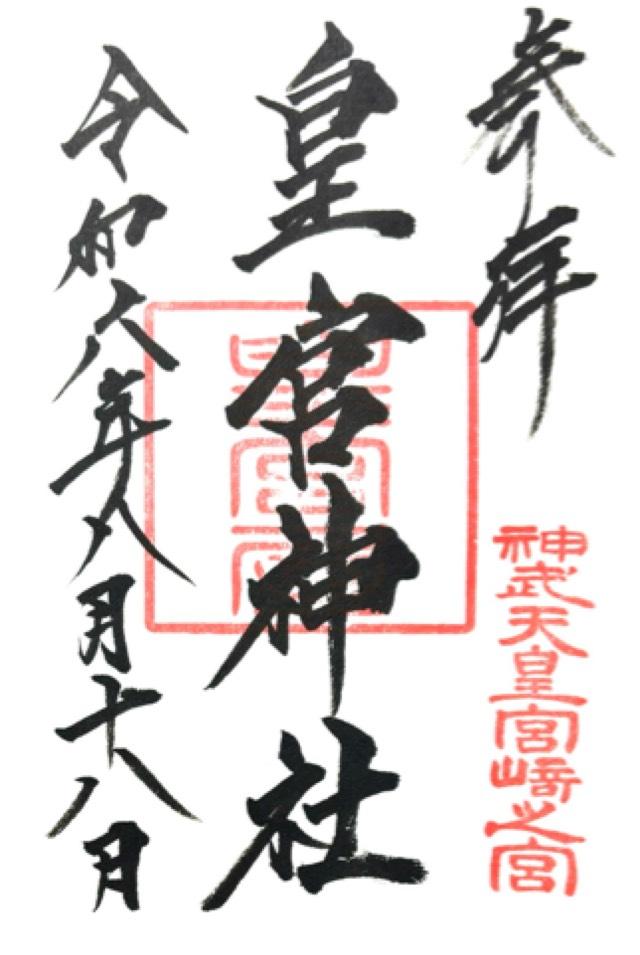 奉拝
神武天皇宮崎之宮
皇宮神社
令和六年八月十八日